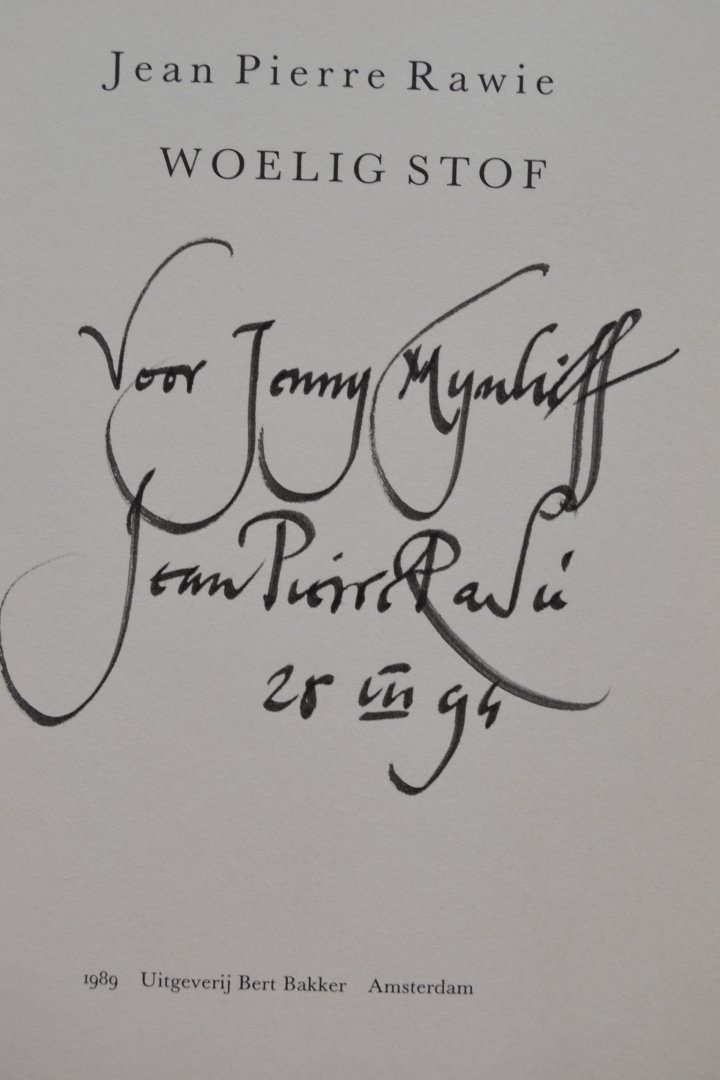 Jean Pierre Rawie
WOELIG STOF
Voor Jenny Mynlieff
Jean Pierre Rawie
28 III 94
1989 Uitgeverij Bert Bakker Amsterdam